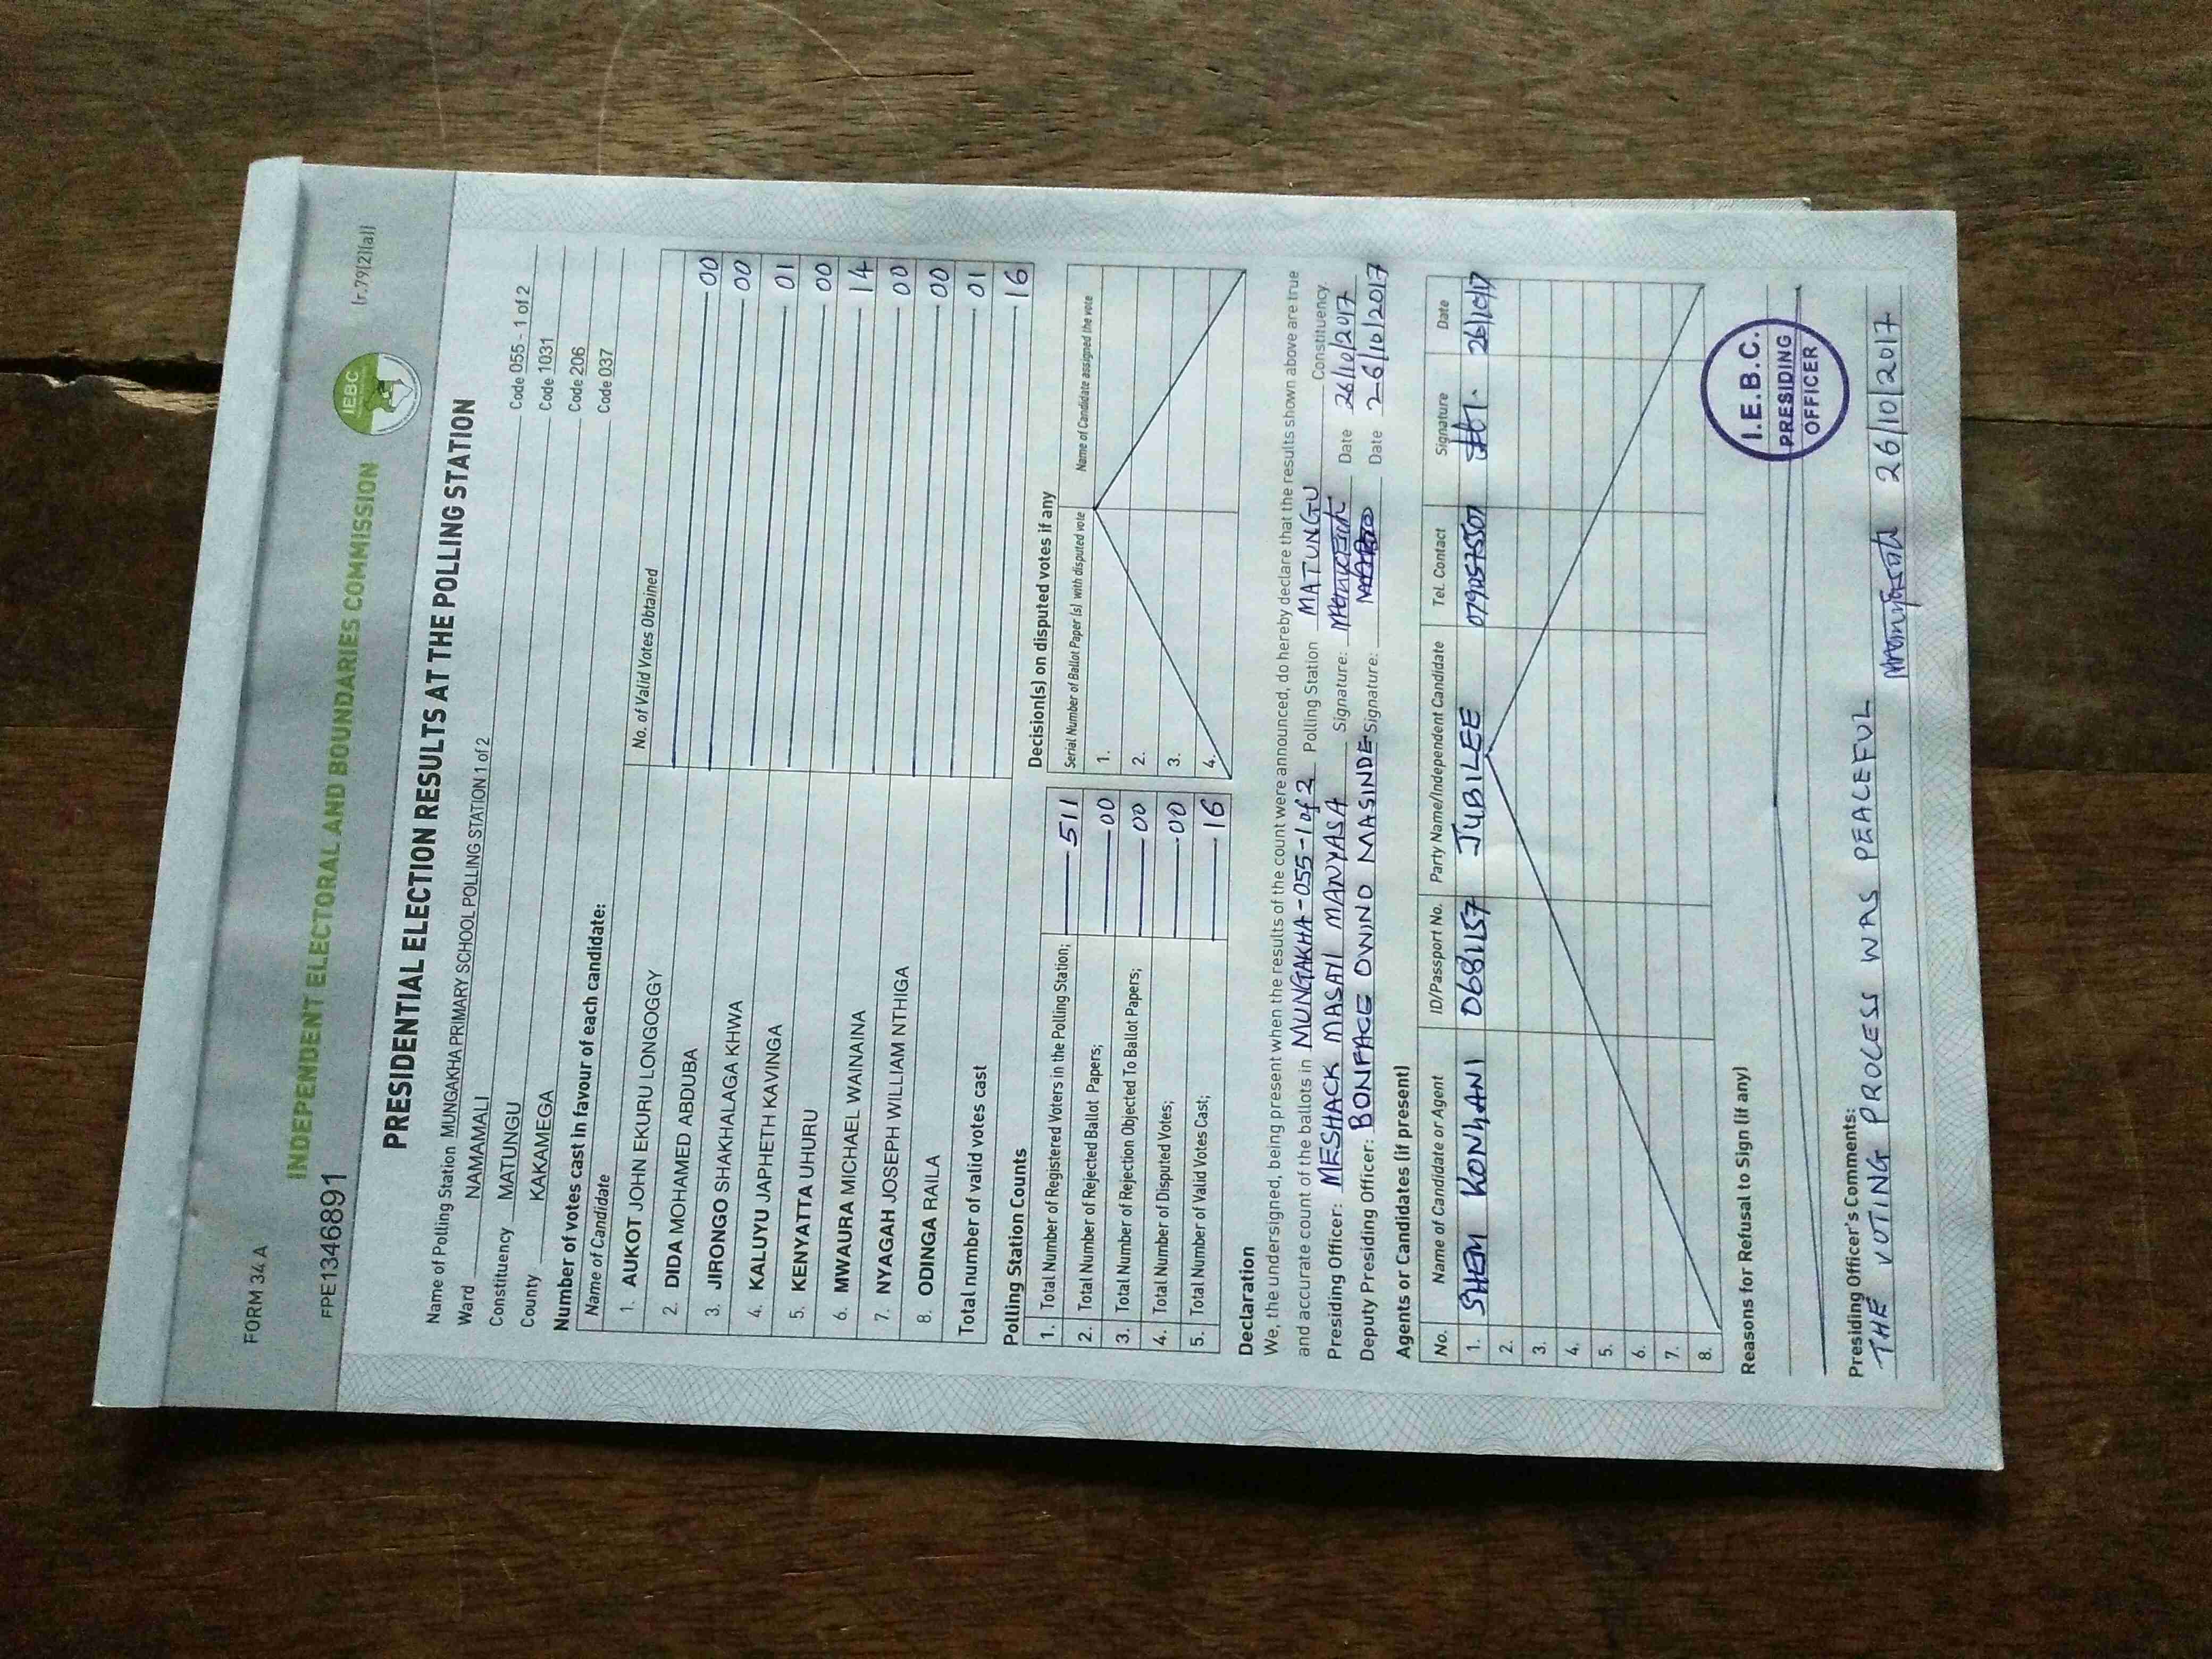 FORM 34 A
(r.79(2)(a))
INDEPENDENT ELECTORAL AND BOUNDARIES COMMISSION
IEBC
FPE1346891
PRESIDENTIAL ELECTION RESULTS AT THE POLLING STATION
Name of Polling Station MUNGAKHA PRIMARY SCHOOL POLLING STATION 1 of 2 Code 055 - 1 of 2
Ward NAMAMALI Code 1031
Constituency MATUNGU Code 206
County KAKAMEGA Code 037
Number of votes cast in favour of each candidate:
Name of Candidate No. of Valid Votes Obtained
1. AUKOT JOHN EKURU LONGOGGY 00
2. DIDA MOHAMED ABDUBA 00
3. JIRONGO SHAKHALAGA KHWA 01
4. KALUYU JAPHETH KAVINGA 00
5. KENYATTA UHURU 14
6. MWAURA MICHAEL WAINAINA 00
7. NYAGAH JOSEPH WILLIAM NTHIGA 00
8. ODINGA RAILA 01
Total number of valid votes cast 16
Polling Station Counts
1. Total Number of Registered Voters in the Polling Station; 511
2. Total Number of Rejected Ballot Papers; 00
3. Total Number of Rejection Objected To Ballot Papers; 00
4. Total Number of Disputed Votes; 00
5. Total Number of Valid Votes Cast; 16
Decision(s) on disputed votes if any
Serial Number of Ballot Paper (s) with disputed vote Name of Candidate assigned the vote
1.
2.
3.
4.
Declaration
We, the undersigned, being present when the results of the count were announced, do hereby declare that the results shown above are true
and accurate count of the ballots in MUNGAKHA-055-1 of 2 Polling Station MATUNGU Constituency.
Presiding Officer: MESHACK MASAYI MANYASA Signature: Date 26/10/2017
Deputy Presiding Officer: BONIFACE OWINO MASINDE Signature: Date 26/10/2017
Agents or Candidates (if present)
No. Name of Candidate or Agent ID/Passport No. Party Name/Independent Candidate Tel. Contact Signature Date
1. SHEM KONYANI 0681157 JUBILEE 26/10/17
2.
3.
4.
5.
6.
7.
8.
Reasons for Refusal to Sign (if any)
I.E.B.C.
PRESIDING
OFFICER
Presiding Officer's Comments:
THE VOTING PROCESS WAS PEACEFUL
26/10/2017